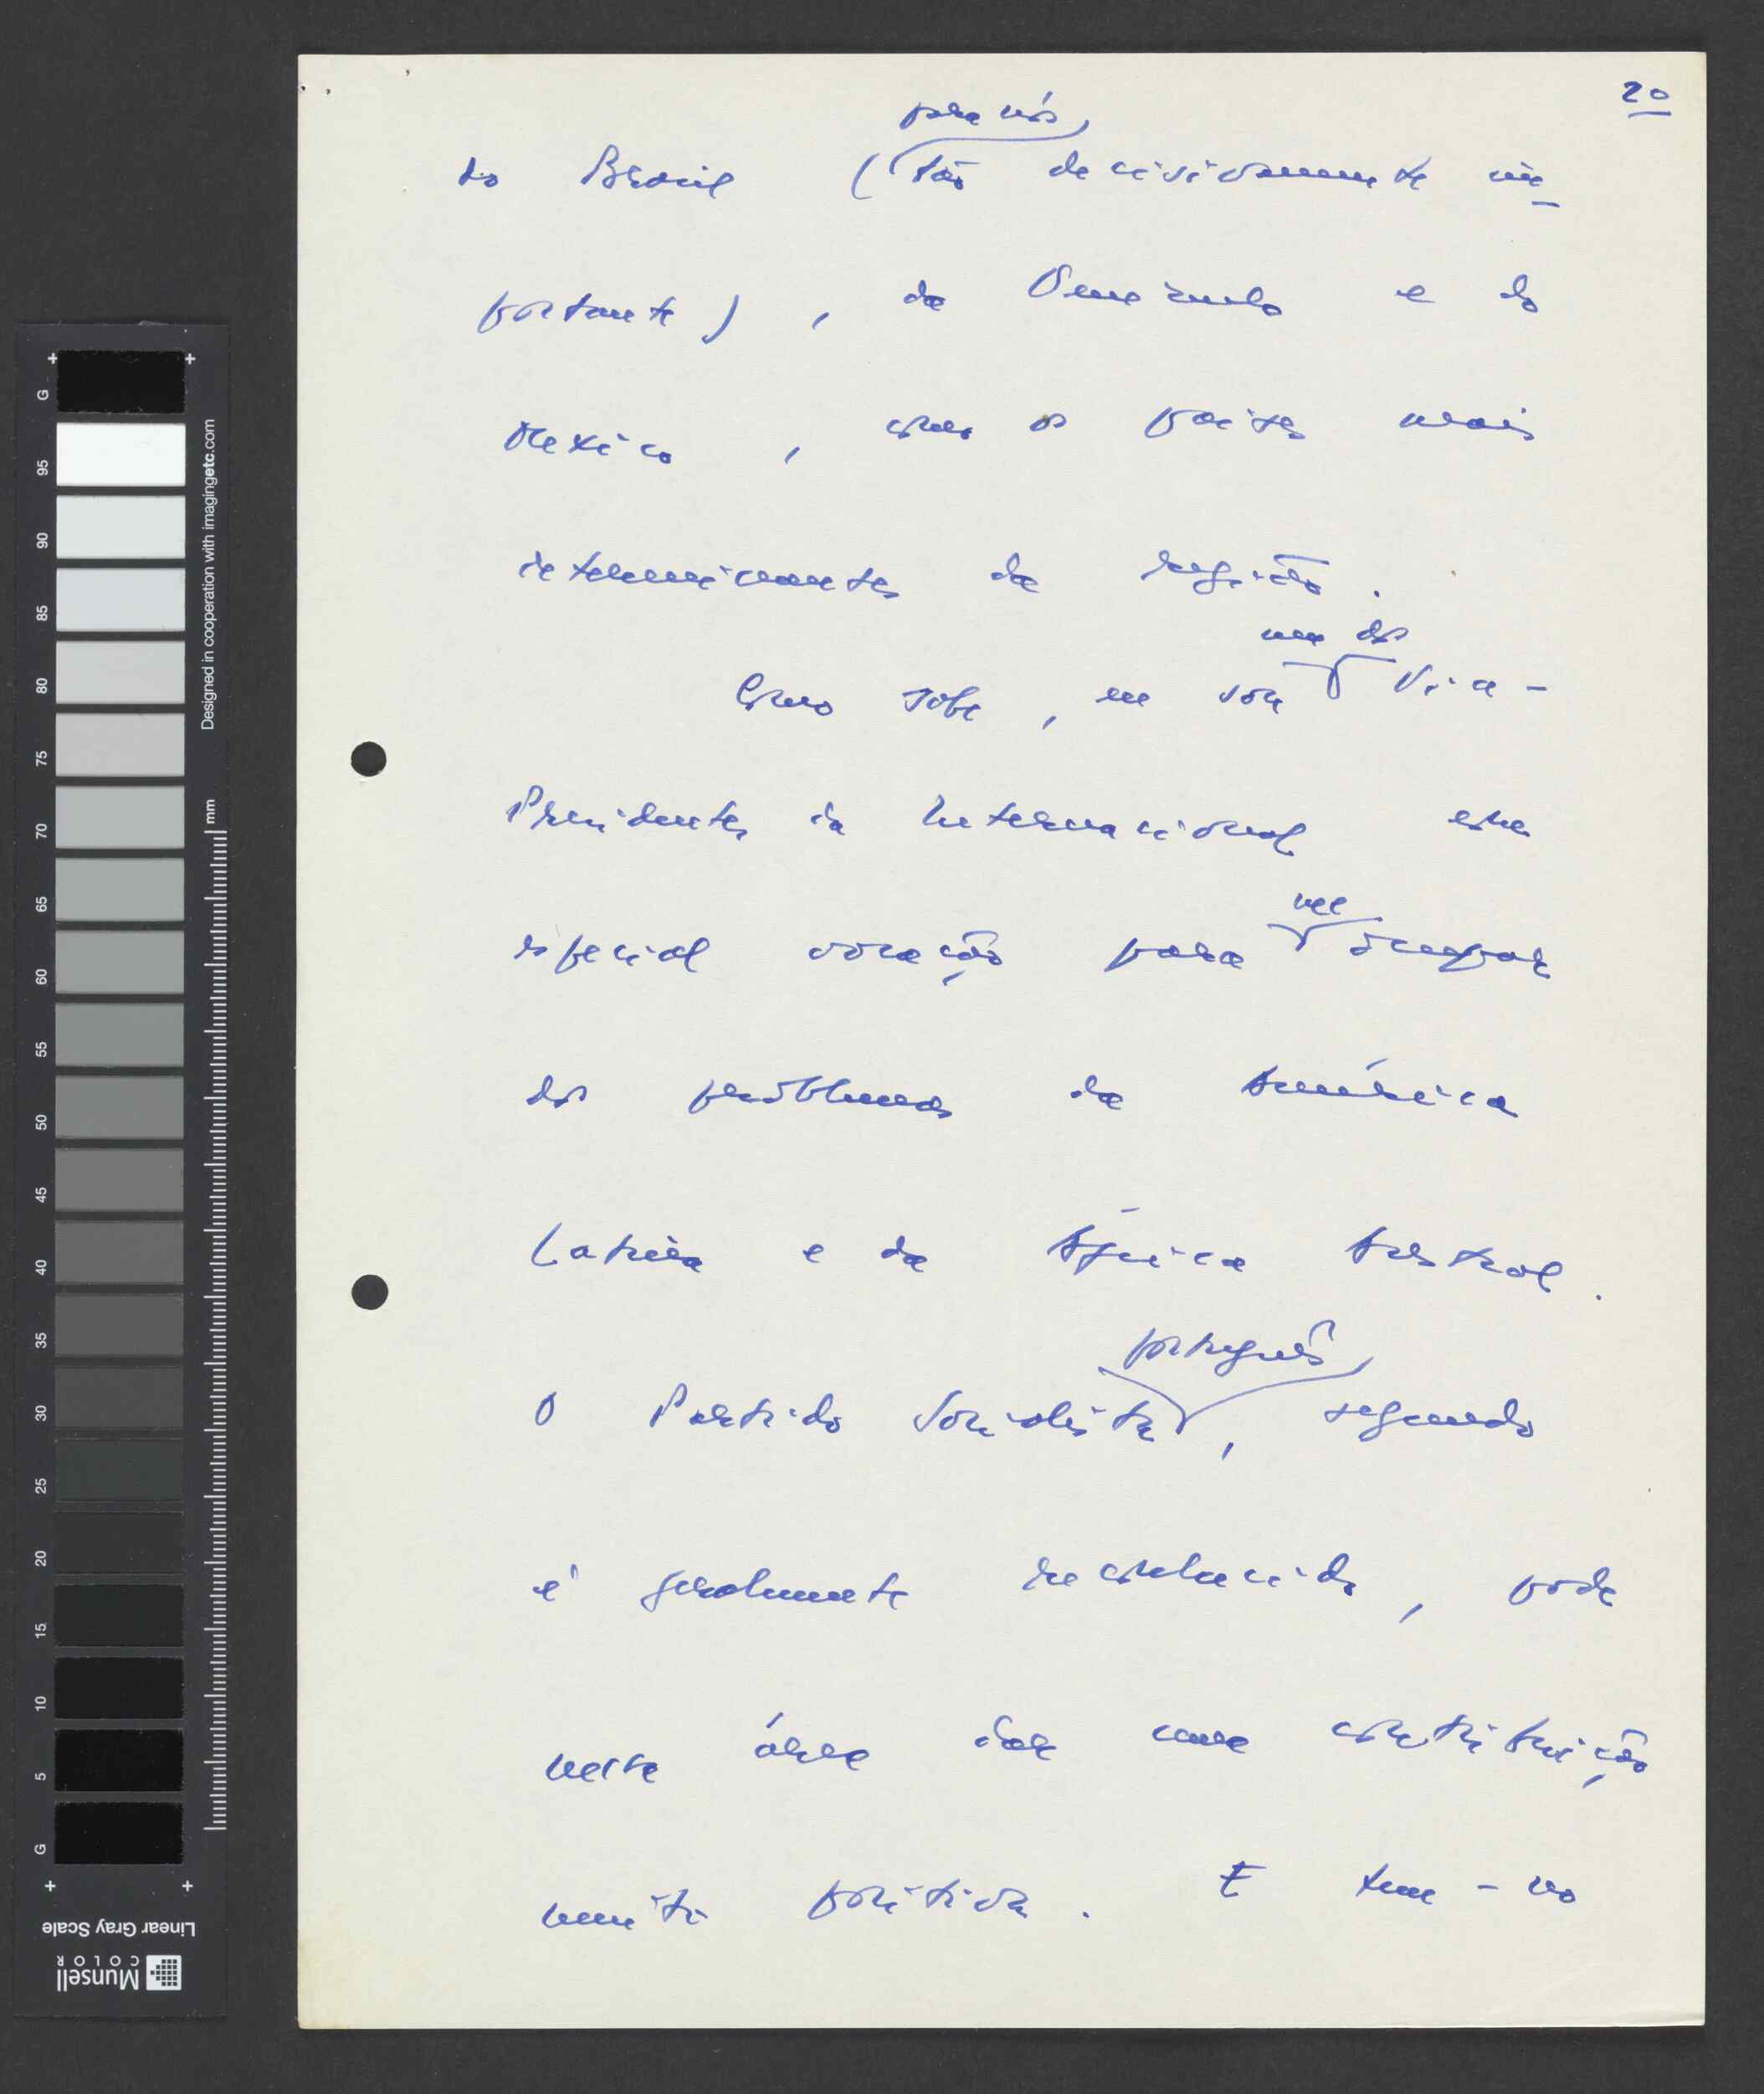 20
para nós,
do Brasil (tão decisivamente im-
portante), da Venezuela e do
Mexico, com os países mais
determinantes da região.
um dos
Como sabe, eu sou Vice-
Presidentes da Internacional com
especial vocação para me ocupar
dos problemas da América
Latina e da África Austral.
português,
O Partido Socialista, segundo
é geralmente reconhecido, pode
nessa área dar uma contribuição
muito positiva. E tem-no
G
95
90
85
80
75
70
65
60
55
50
45
40
35
30
25
20
15
10
5
G
mm
Designed in cooperation with imagingetc.com
Linear Gray Scale
Munsell
COLOR